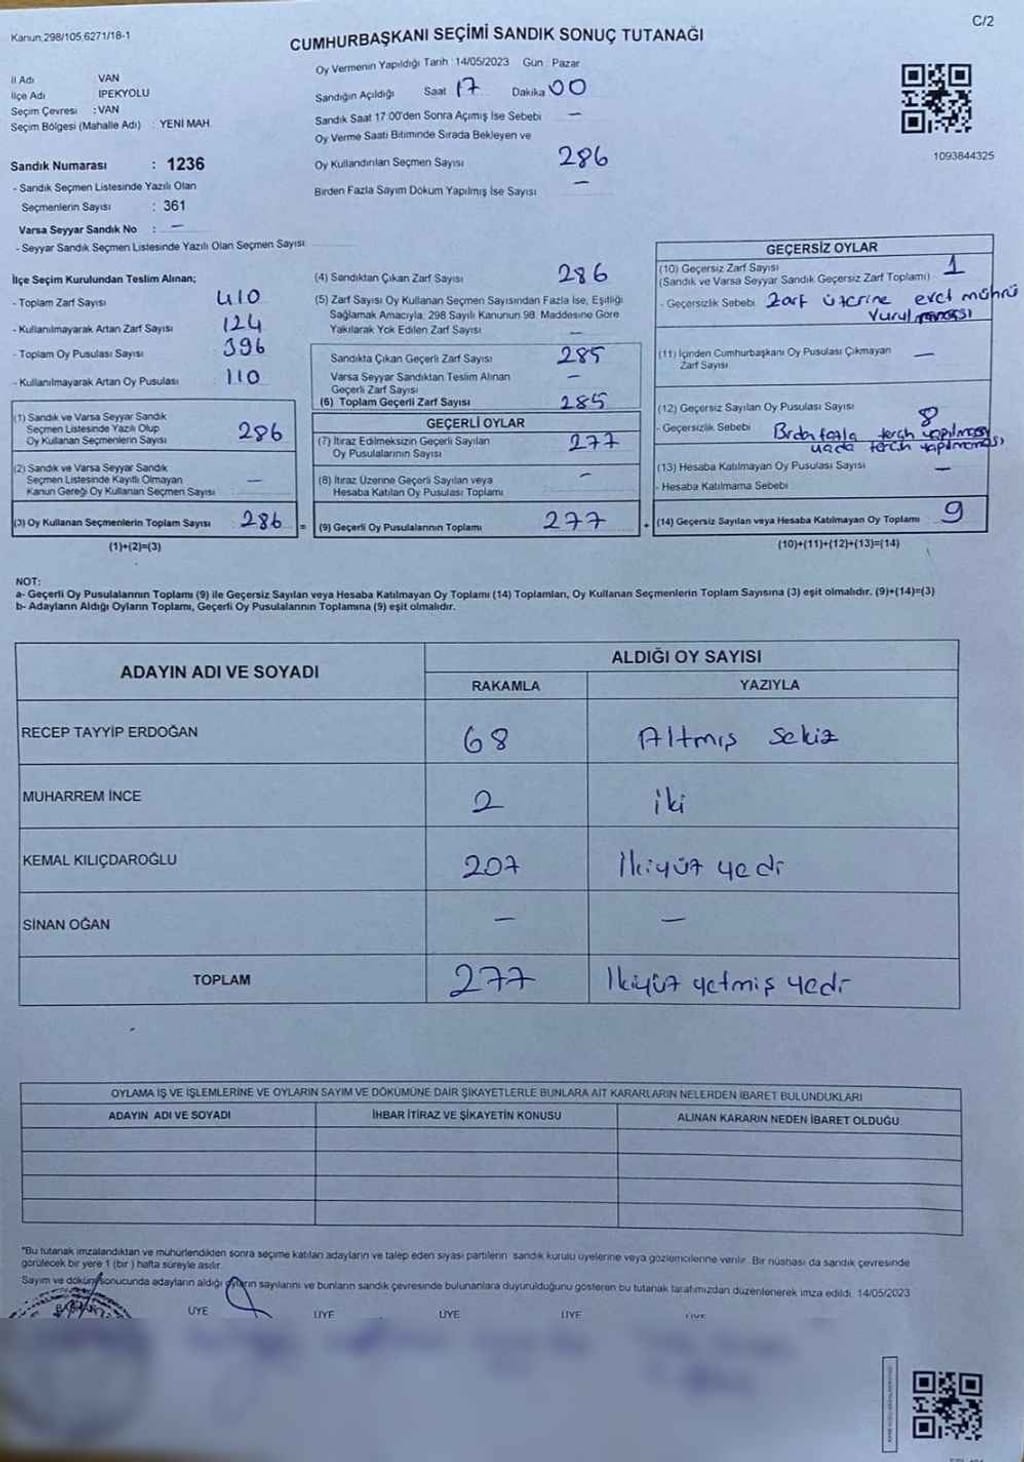 Kanun.298/105,6271/18-1
C/2
CUMHURBAŞKANI SEÇİMİ SANDIK SONUÇ TUTANAĞI
Oy Vermenin Yapıldığı Tarih : 14/05/2023 Gün : Pazar
İl Adı VAN
İlçe Adı İPEKYOLU
Seçim Çevresi : VAN
Seçim Bölgesi (Mahalle Adı) : YENİ MAH.
Sandığın Açıldığı Saat 17 Dakika 00
Sandık Saat 17:00'den Sonra Açımış İse Sebebi —
Oy Verme Saati Bitiminde Sırada Bekleyen ve
Oy Kullandırılan Seçmen Sayısı 286
Birden Fazla Sayım Döküm Yapılmış İse Sayısı —
1093844325
Sandık Numarası : 1236
- Sandık Seçmen Listesinde Yazılı Olan
Seçmenlerin Sayısı : 361
Varsa Seyyar Sandık No : —
- Seyyar Sandık Seçmen Listesinde Yazılı Olan Seçmen Sayısı
İlçe Seçim Kurulundan Teslim Alınan;
- Toplam Zarf Sayısı 410
- Kullanılmayarak Artan Zarf Sayısı 124
- Toplam Oy Pusulası Sayısı 396
- Kullanılmayarak Artan Oy Pusulası 110
(1) Sandık ve Varsa Seyyar Sandık
Seçmen Listesinde Yazılı Olup
Oy Kullanan Seçmenlerin Sayısı 286
(2) Sandık ve Varsa Seyyar Sandık
Seçmen Listesinde Kayıtlı Olmayan
Kanun Gereği Oy Kullanan Seçmen Sayısı —
(3) Oy Kullanan Seçmenlerin Toplam Sayısı 286 =
(1)+(2)=(3)
(4) Sandıktan Çıkan Zarf Sayısı 286
(5) Zarf Sayısı Oy Kullanan Seçmen Sayısından Fazla İse, Eşitliği
Sağlamak Amacıyla, 298 Sayılı Kanunun 98. Maddesine Göre
Yakılarak Yok Edilen Zarf Sayısı —
Sandıkta Çıkan Geçerli Zarf Sayısı 285
Varsa Seyyar Sandıktan Teslim Alınan
Geçerli Zarf Sayısı —
(6) Toplam Geçerli Zarf Sayısı 285
GEÇERLİ OYLAR
(7) İtiraz Edilmeksizin Geçerli Sayılan
Oy Pusulalarının Sayısı 277
(8) İtiraz Üzerine Geçerli Sayılan veya
Hesaba Katılan Oy Pusulası Toplamı —
(9) Geçerli Oy Pusulalarının Toplamı 277 +
GEÇERSİZ OYLAR
(10) Geçersiz Zarf Sayısı 1
(Sandık ve Varsa Seyyar Sandık Geçersiz Zarf Toplamı)
- Geçersizlik Sebebi Zarf üzerine evet mührü
vurulmaması
(11) İçinden Cumhurbaşkanı Oy Pusulası Çıkmayan
Zarf Sayısı —
(12) Geçersiz Sayılan Oy Pusulası Sayısı 8
- Geçersizlik Sebebi Birden fazla tercih yapılması
yada tercih yapılmaması,
(13) Hesaba Katılmayan Oy Pusulası Sayısı —
- Hesaba Katılmama Sebebi
(14) Geçersiz Sayılan veya Hesaba Katılmayan Oy Toplamı 9
(10)+(11)+(12)+(13)=(14)
NOT:
a- Geçerli Oy Pusulalarının Toplamı (9) ile Geçersiz Sayılan veya Hesaba Katılmayan Oy Toplamı (14) Toplamları, Oy Kullanan Seçmenlerin Toplam Sayısına (3) eşit olmalıdır. (9)+(14)=(3)
b- Adayların Aldığı Oyların Toplamı, Geçerli Oy Pusulalarının Toplamına (9) eşit olmalıdır.
ADAYIN ADI VE SOYADI ALDIĞI OY SAYISI
RAKAMLA YAZIYLA
RECEP TAYYİP ERDOĞAN 68 Altmış Sekiz
MUHARREM İNCE 2 iki
KEMAL KILIÇDAROĞLU 207 İkiyüz yedi
SİNAN OĞAN — —
TOPLAM 277 İkiyüz yetmiş yedi
OYLAMA İŞ VE İŞLEMLERİNE VE OYLARIN SAYIM VE DÖKÜMÜNE DAİR ŞİKAYETLERLE BUNLARA AİT KARARLARIN NELERDEN İBARET BULUNDUKLARI
ADAYIN ADI VE SOYADI İHBAR İTİRAZ VE ŞİKAYETİN KONUSU ALINAN KARARIN NEDEN İBARET OLDUĞU
"Bu tutanak imzalandıktan ve mühürlendikten sonra seçime katılan adayların ve talep eden siyasi partilerin sandık kurulu üyelerine veya gözlemcilerine verilir. Bir nüshası da sandık çevresinde
görülecek bir yere 1 (bir) hafta süreyle asılır.
Sayım ve döküm sonucunda adayların aldığı oyların sayılarını ve bunların sandık çevresinde bulunanlara duyurulduğunu gösteren bu tutanak tarafımızdan düzenlenerek imza edildi. 14/05/2023
ÜYE ÜYE ÜYE ÜYE ÜYE